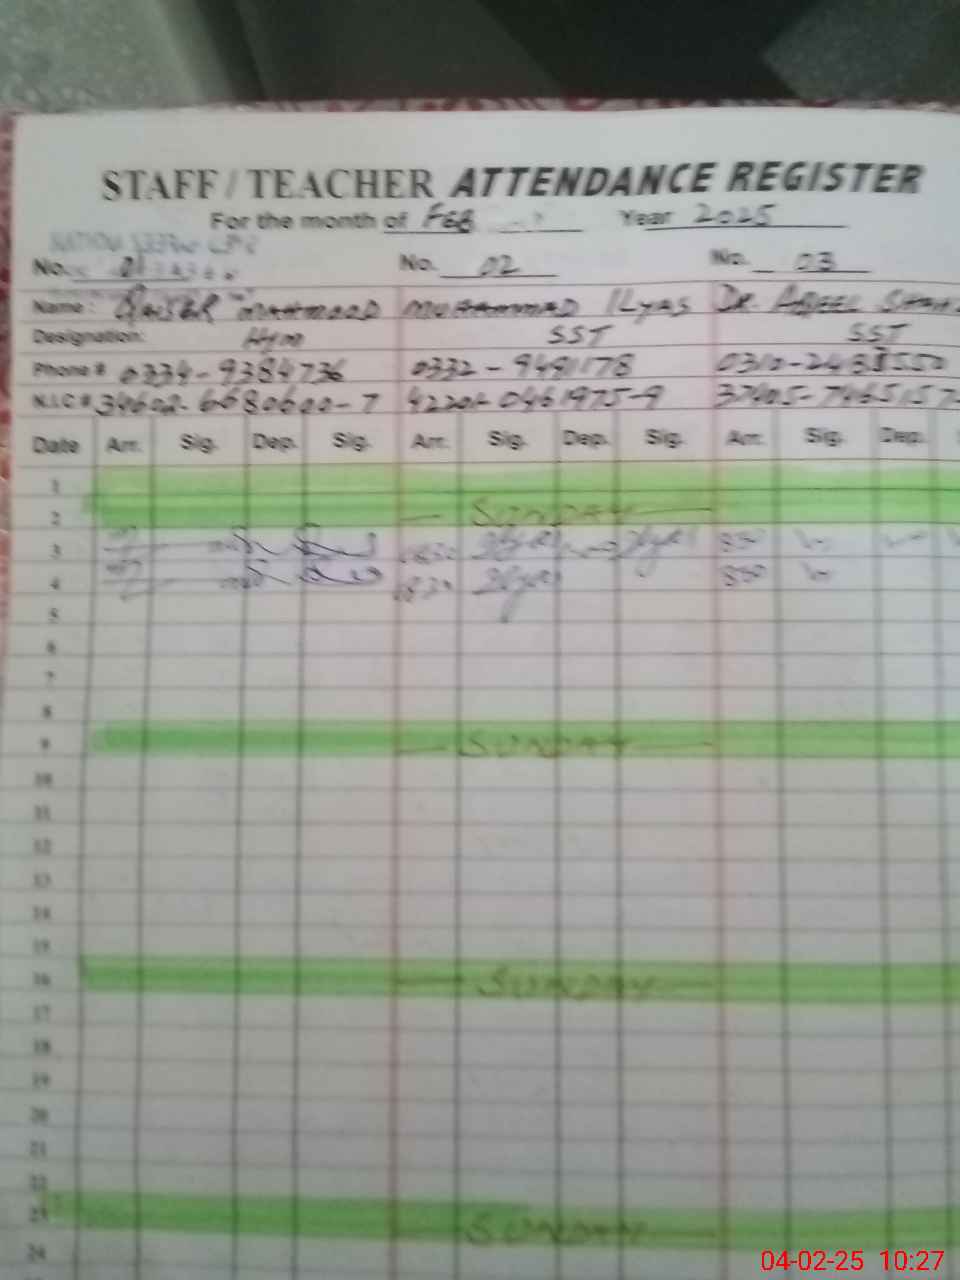 STAFF / TEACHER ATTENDANCE REGISTER
For the month of FEB Year 2025
No. 01 No. 02 No. 03
Name: QAISER MAHMOOD MUHAMMAD ILYAS DR. ADEEL
Designation: Hm SST SST
Phone # 0334-9384736 0332-9491178
N.I.C # 34602-6680600-7 42201-0461975-9
Date Arr. Sig. Dep. Sig. Arr. Sig. Dep. Sig. Arr. Sig. Dep.
1
2 SUNDAY
3 0830 850
4 0830 850
5
6
7
8
9 SUNDAY
10
11
12
13
14
15
16 SUNDAY
17
18
19
20
21
22
23 SUNDAY
24
04-02-25 10:27